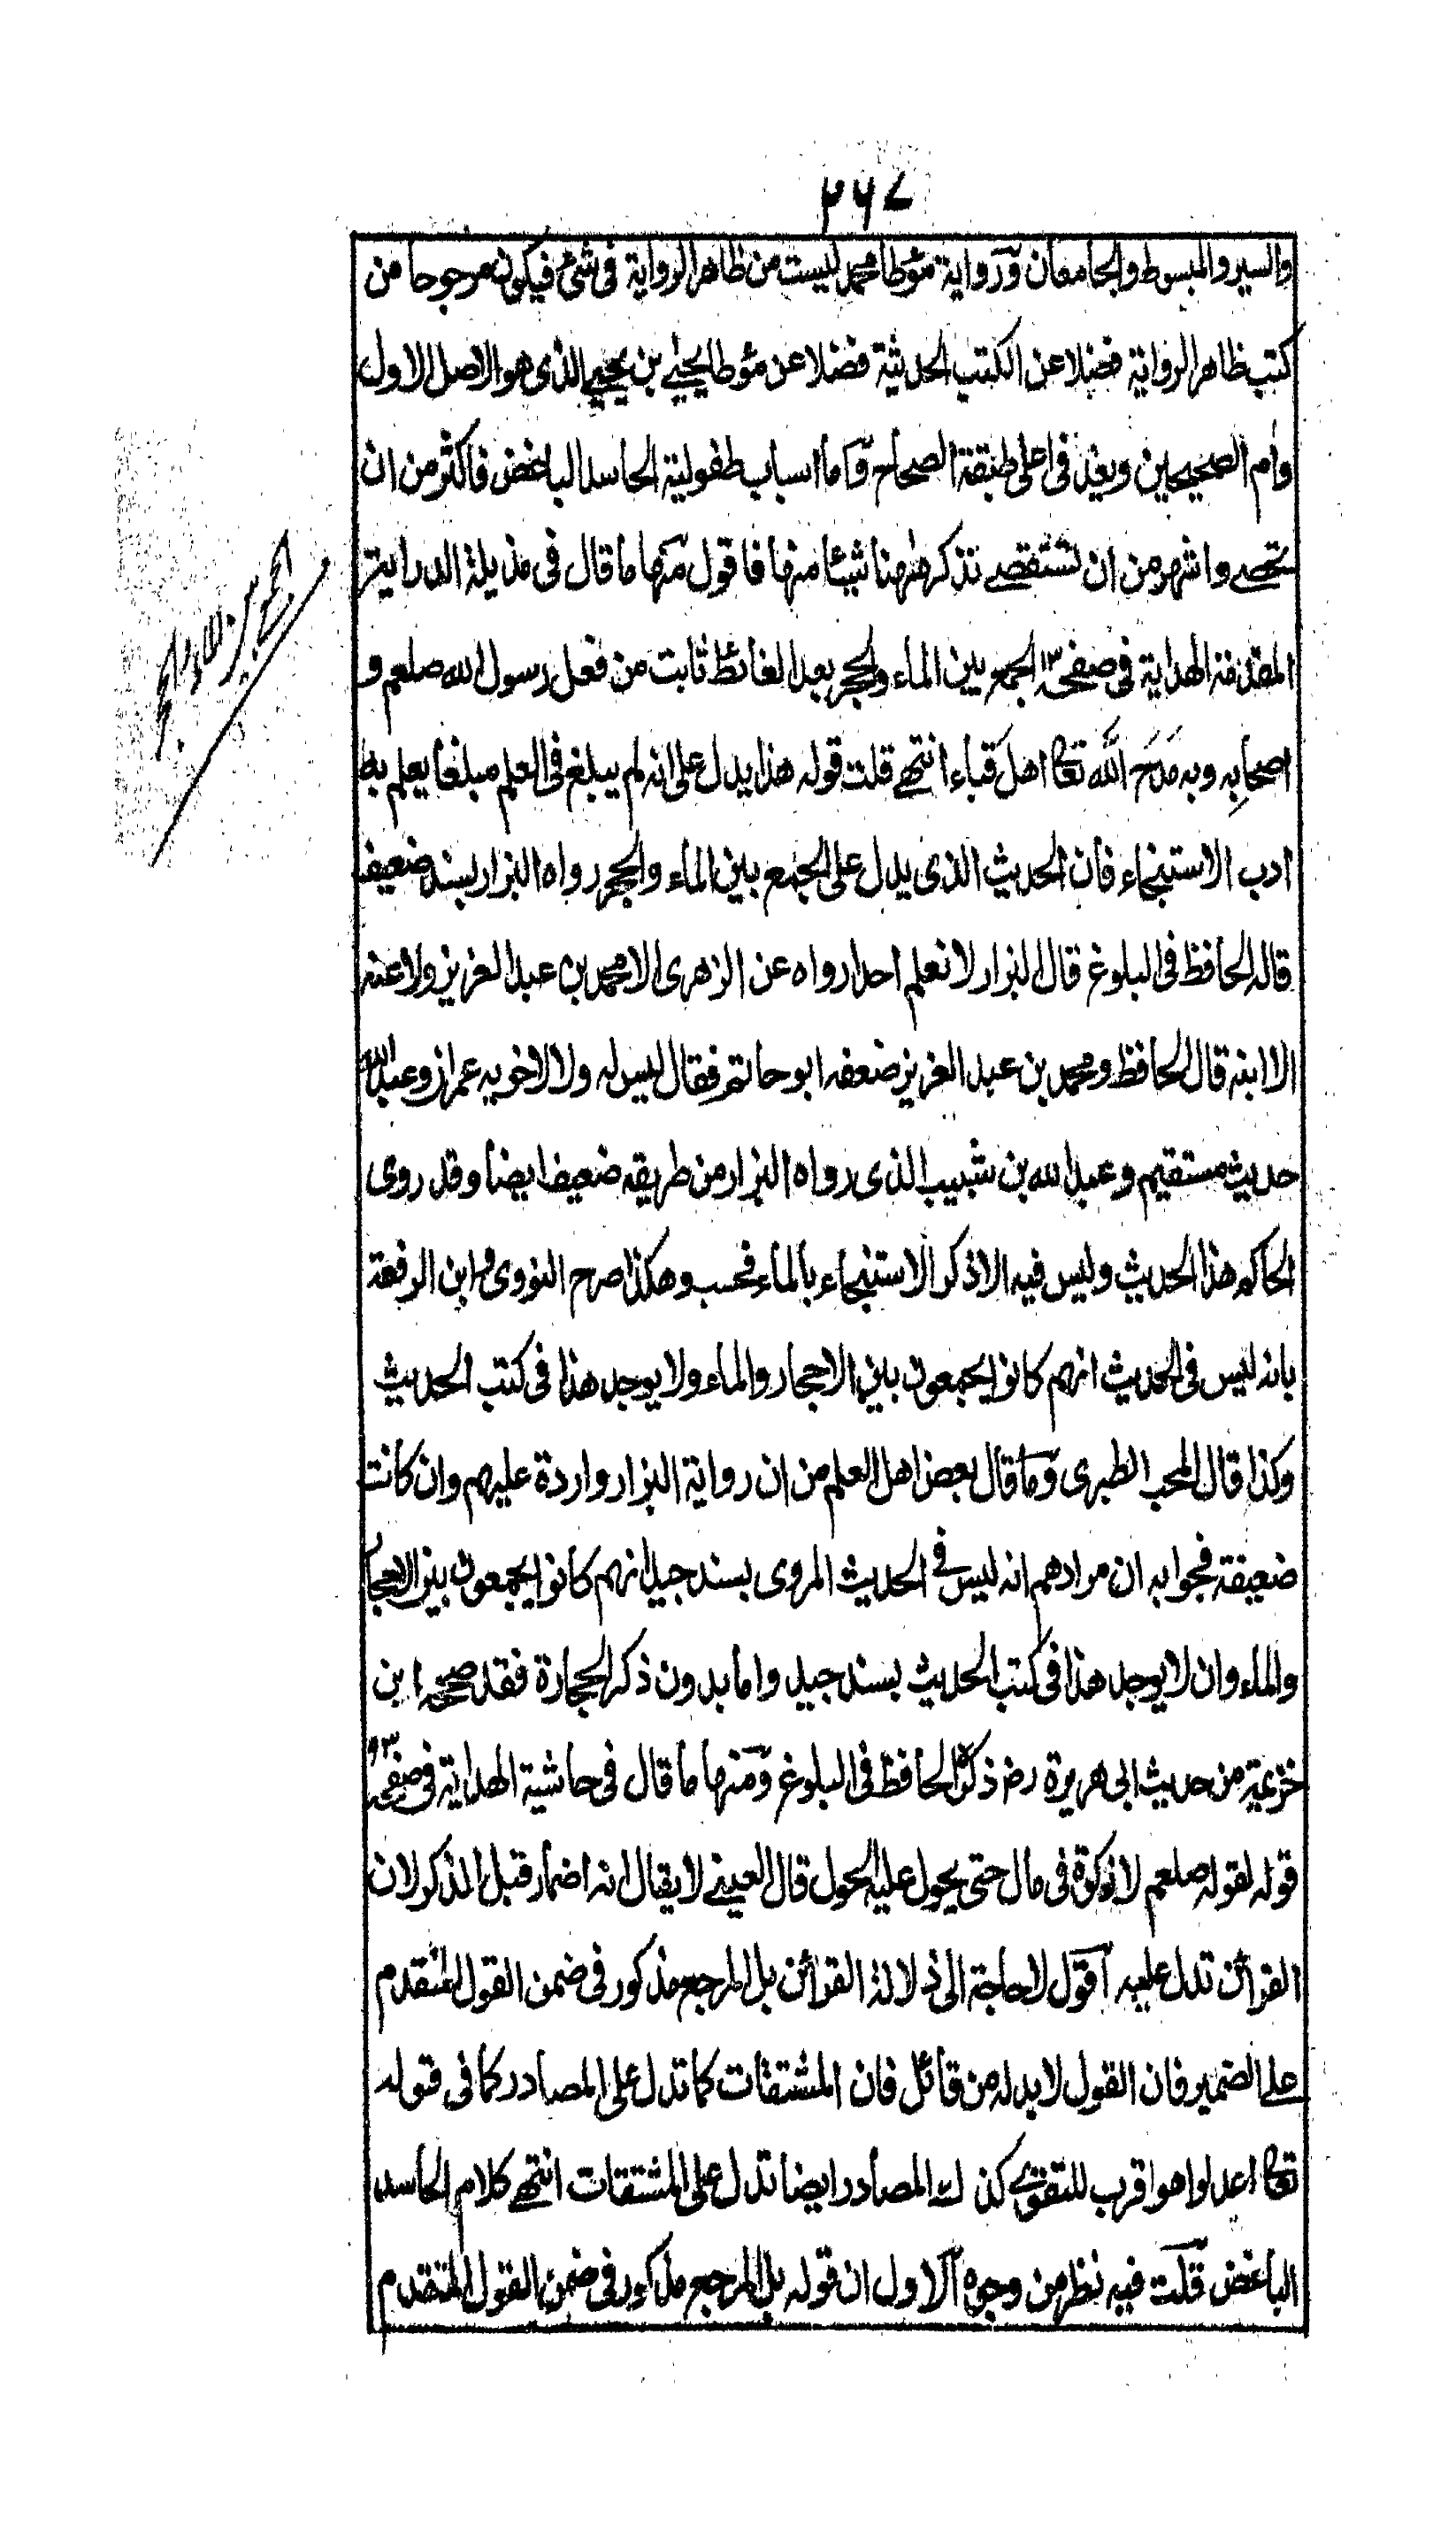 ٢٦٧
والسير والمبسوط والجامعان ورواية مؤطا محمد ليست من ظاهر الرواية فى شئ فيكون مرجوحا من
كتب ظاهر الرواية فضلا عن الكتب الحديثية فضلا عن مؤطا يحيى بن يحيى الذى هو الاصل الاول
وام الصحيحين ويعد فى اعلى طبقة الصحاح واما اسباب طفولية الحاسد الباغض فاكثر من ان
تحصے واشهر من ان تستقصے نذكر ههنا شيئا منها فاقول منها ما قال فى مذيلة الدراية
المقدمة الهداية فى صفحه ١٣ الجمع بين الماء والحجر بعد الغائط ثابت من فعل رسول الله صلعم و
اصحابه وبه مدح الله تعا اهل قباء انتهے قلت قوله هذا يدل على انه لم يبلغ فى العلم مبلغا يعلم به
ادب الاستنجاء فان الحديث الذى يدل على الجمع بين الماء والحجر رواه البزار بسند ضعيف
قاله الحافظ فى البلوغ قال البزار لا نعلم احدا رواه عن الزهرى الا محمد بن عبد العزيز ولا عنه
الا ابنه قال الحافظ ومحمد بن عبد العزيز ضعفه ابو حاتم فقال ليس له ولا لاخويه عمران وعبد الله
حديث مستقيم وعبد الله بن شبيب الذى رواه البزار من طريقه ضعيف ايضا وقد روى
الحاكم هذا الحديث وليس فيه الا ذكر الاستنجاء بالماء فحسب وهكذا صرح النووى وابن الرفعة
بانه ليس فى الحديث انهم كانوا يجمعون بين الاحجار والماء ولا يوجد هذا فى كتب الحديث
وكذا قال المحب الطبرى وما قال بعض اهل العلم من ان رواية البزار واردة عليهم وان كانت
ضعيفة فجوابه ان مرادهم انه ليس فے الحديث المروى بسند جيد انهم كانوا يجمعون بين الاحجا
والماء وان لا يوجد هذا فى كتب الحديث بسند جيد واما بدون ذكر الحجارة فقد صححه ابن
خزيمة من حديث ابى هريرة رض ذكره الحافظ فى البلوغ ومنها ما قال فى حاشية الهداية فى صفحه
قوله لقوله صلعم لا زكوة فى مال حتى يحول عليه الحول قال العينے لا يقال انه اضمار قبل الذكر لان
القرائن تدل عليه اقول لا حاجة الى دلالة القرائن بل المرجع مذكور فى ضمن القول المتقدم
على الضمير فان القول لا بد له من قائل فان المشتقات كما تدل على المصادر كما فى قوله
تعا اعدلوا هو اقرب للتقوے كذلك المصادر ايضا تدل على المشتقات انتهے كلام الحاسد
الباغض قلت فيه نظر من وجوه الاول ان قوله بل المرجع مذكور فى ضمن القول المتقدم